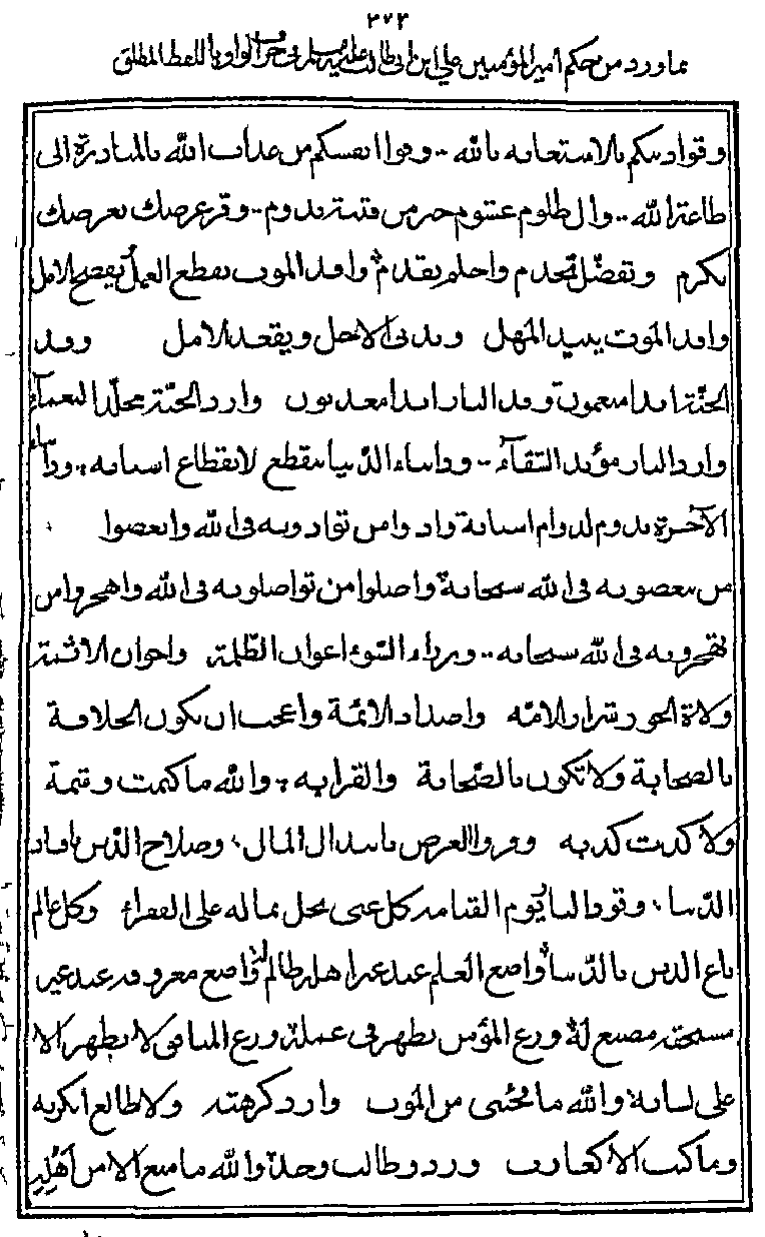 ٢٧٣
مما ورد من حكم أمير المؤمنين علي ابن أبي طالب عليه في حرف الواو باللفظ المطلق
وقوا دينكم بالاستعانة بالله وقوا انفسكم من عذاب الله بالمبادرة الى
طاعة الله وال ظلوم غشوم خير من فتنة تدوم وفر عرضك بعرضك
تكرم وتفضل تخدم واحلم تقدم وافد الموت يقطع العمل يفضح الامل
وافد الموت يبيد المهل ويدني الاجل ويقعد الامل وفد
الجنة ابدا منعمون وفد النار ابدا معذبون وارد الجنة مخلد النعماء
وارد النار مؤبد الشقاء وداد ابناء الدنيا ينقطع لانقطاع اسبابه وداد ابناء
الآخرة يدوم لدوام اسبابه وادوا من توادونه في الله وابغضوا
من تبغضونه في الله سبحانه واصلوا من تواصلونه في الله واهجروا من
تهجرونه في الله سبحانه وزراء السوء اعوان الظلمة واخوان الاثمة
ولاة الجور شرار الامة واضداد الائمة واعجبا ان تكون الخلافة
بالصحابة ولا تكون بالصحابة والقرابة والله ما كتمت وشمة
ولا كذبت كذبة وفروا العرض بابتذال المال وصلاح الدين بافساد
الدنيا وقود النار يوم القيامة كل غني بخل بماله على الفقراء وكل عالم
باع الدين بالدنيا واضع العلم عند غير اهله ظالم له واضع معروفه عند غير
مستحقه مضيع له ورع المؤمن يظهر في عمله ورع المنافق لا يظهر الا
على لسانه والله ما فجئني من الموت وارد كرهته ولا طالع انكرته
وما كنت الا كقارب ورد وطالب وجد والله ما منع الامن اهله